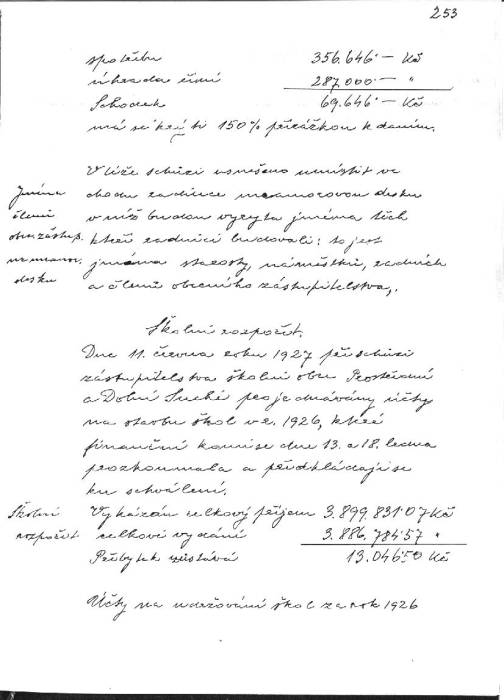 253
spotřeba 356.646·— Kč
úhrada činí 287.000·— "
Schodek 69.646·— Kč
má se krýti 150% přirážkou k daním.
V téže schůzi usneseno umístit ve
chodu radnice mramorovou desku
v níž budou vyryta jména těch
kteří radnici budovali: to jest
jména starosty, náměstků, radních
a členů obecního zastupitelstva,.
Jména
členů
obec. zastup.
mramor.
desku
Školní rozpočet.
Dne 11. června roku 1927 při schůzi
zástupitelstva školní obce Prostřední
a Dolní Suché projednávány účty
na stavbu škol v r. 1926, které
finanční komise dne 13. a 18. ledna
prozkoumala a předkládají se
ku schválení.
Školní
rozpočet
Vykázán celkový příjem 3.899.831·07 Kč
celkové vydání 3.886.784·57 "
Přebytek zůstává 13.046·50 Kč
Účty na udržování škol za rok 1926